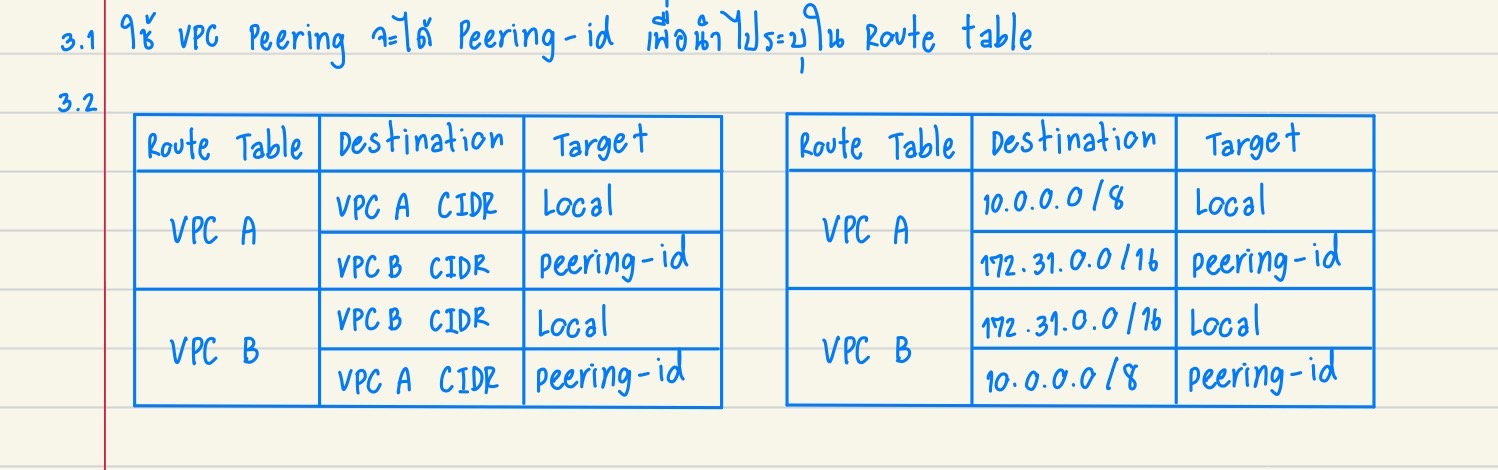 3.1 ใช้ VPC Peering จะได้ Peering-id เพื่อนำไประบุใน Route table
3.2
Route Table Destination Target
VPC A VPC A CIDR Local
VPC B CIDR peering-id
VPC B VPC B CIDR Local
VPC A CIDR peering-id
Route Table Destination Target
VPC A 10.0.0.0/8 Local
172.31.0.0/16 peering-id
VPC B 172.31.0.0/16 Local
10.0.0.0/8 peering-id